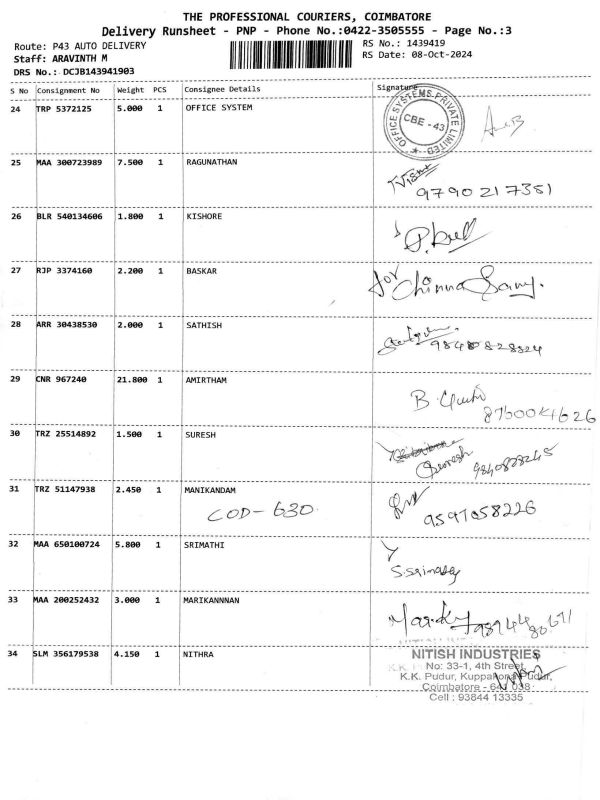 THE PROFESSIONAL COURIERS, COIMBATORE
Delivery Runsheet - PNP - Phone No.:0422-3505555 - Page No.:3
Route: P43 AUTO DELIVERY RS No.: 1439419
Staff: ARAVINTH M RS Date: 08-Oct-2024
DRS No.: DCJB143941903
S No Consignment No Weight PCS Consignee Details Signature
24 TRP 5372125 5.000 1 OFFICE SYSTEM
OFFICE SYSTEMS PRIVATE LIMITED
CBE - 43
25 MAA 300723989 7.500 1 RAGUNATHAN
9790217351
26 BLR 540134606 1.800 1 KISHORE
27 RJP 3374160 2.200 1 BASKAR
for Chinna Samy.
28 ARR 30438530 2.000 1 SATHISH
29 CNR 967240 21.800 1 AMIRTHAM
30 TRZ 25514892 1.500 1 SURESH
Suresh
31 TRZ 51147938 2.450 1 MANIKANDAM
COD - 630 9597058226
32 MAA 650100724 5.800 1 SRIMATHI
33 MAA 200252432 3.000 1 MARIKANNNAN
34 SLM 356179538 4.150 1 NITHRA
NITISH INDUSTRIES
No: 33-1, 4th Street,
K.K. Pudur, Kuppakonam Pudur,
Coimbatore - 641 038
Cell : 93844 13335